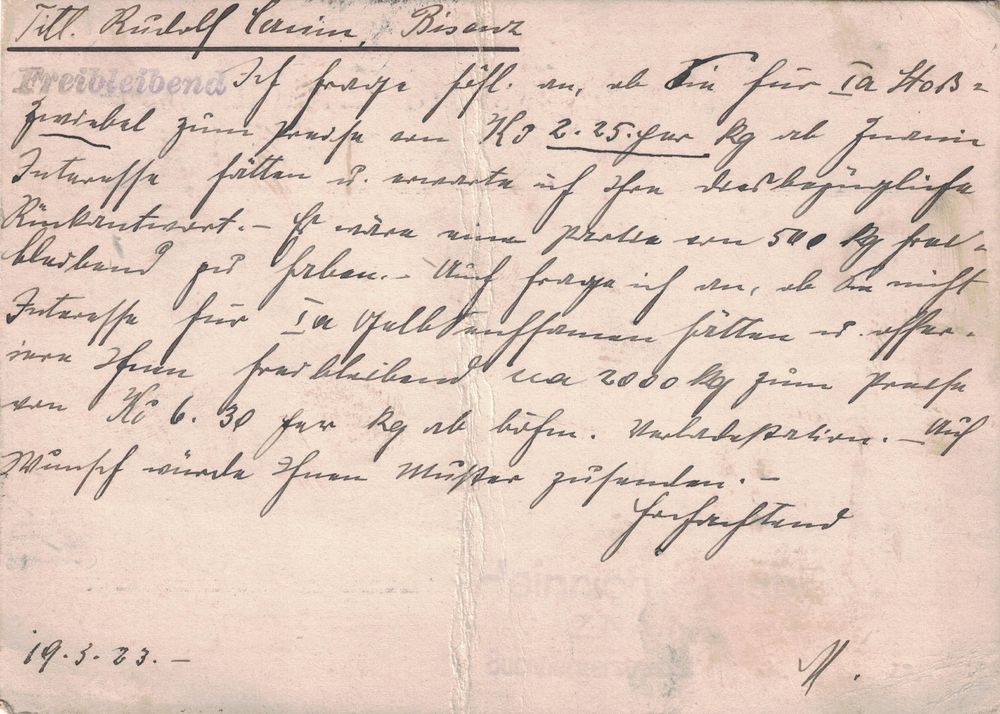 Titl. Rudolf Cerwin, Bisenz
Freibleibend Ich frage höfl. an, ob Sie für Ia Steck-
zwiebel zum Preise von Kč 2.25. per kg ab Znaim
Interesse hätten u. erwarte ich Ihre diesbezügliche
Rückantwort.- Es wäre eine Partie von 500 kg frei-
bleibend zu haben.- Auch frage ich an, ob Sie nicht
Interesse für Ia Gelbsenfsamen hätten u. offer-
iere Ihnen freibleibend ca 2000 kg zum Preise
von Kč 6.30 per kg ab böhm. Verladestation.- Auf
Wunsch würde Ihnen Muster zusenden.-
Hochachtend
19.3.23.-
M.